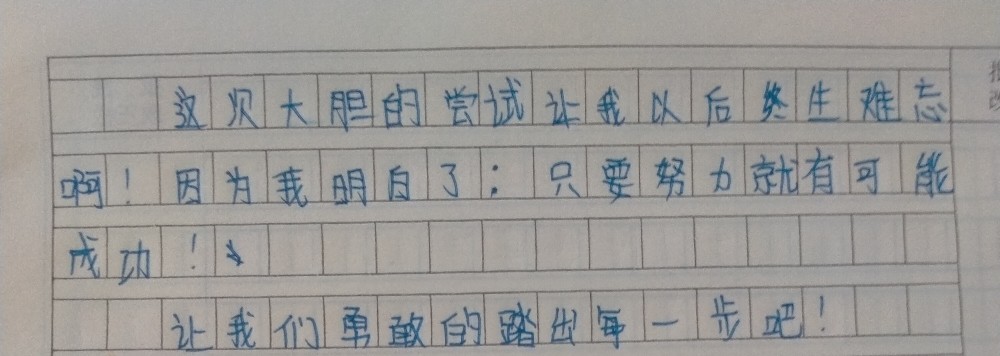 这次大胆的尝试让我以后终生难忘
啊！因为我明白了：只要努力就有可能
成功！
让我们勇敢的踏出每一步吧！